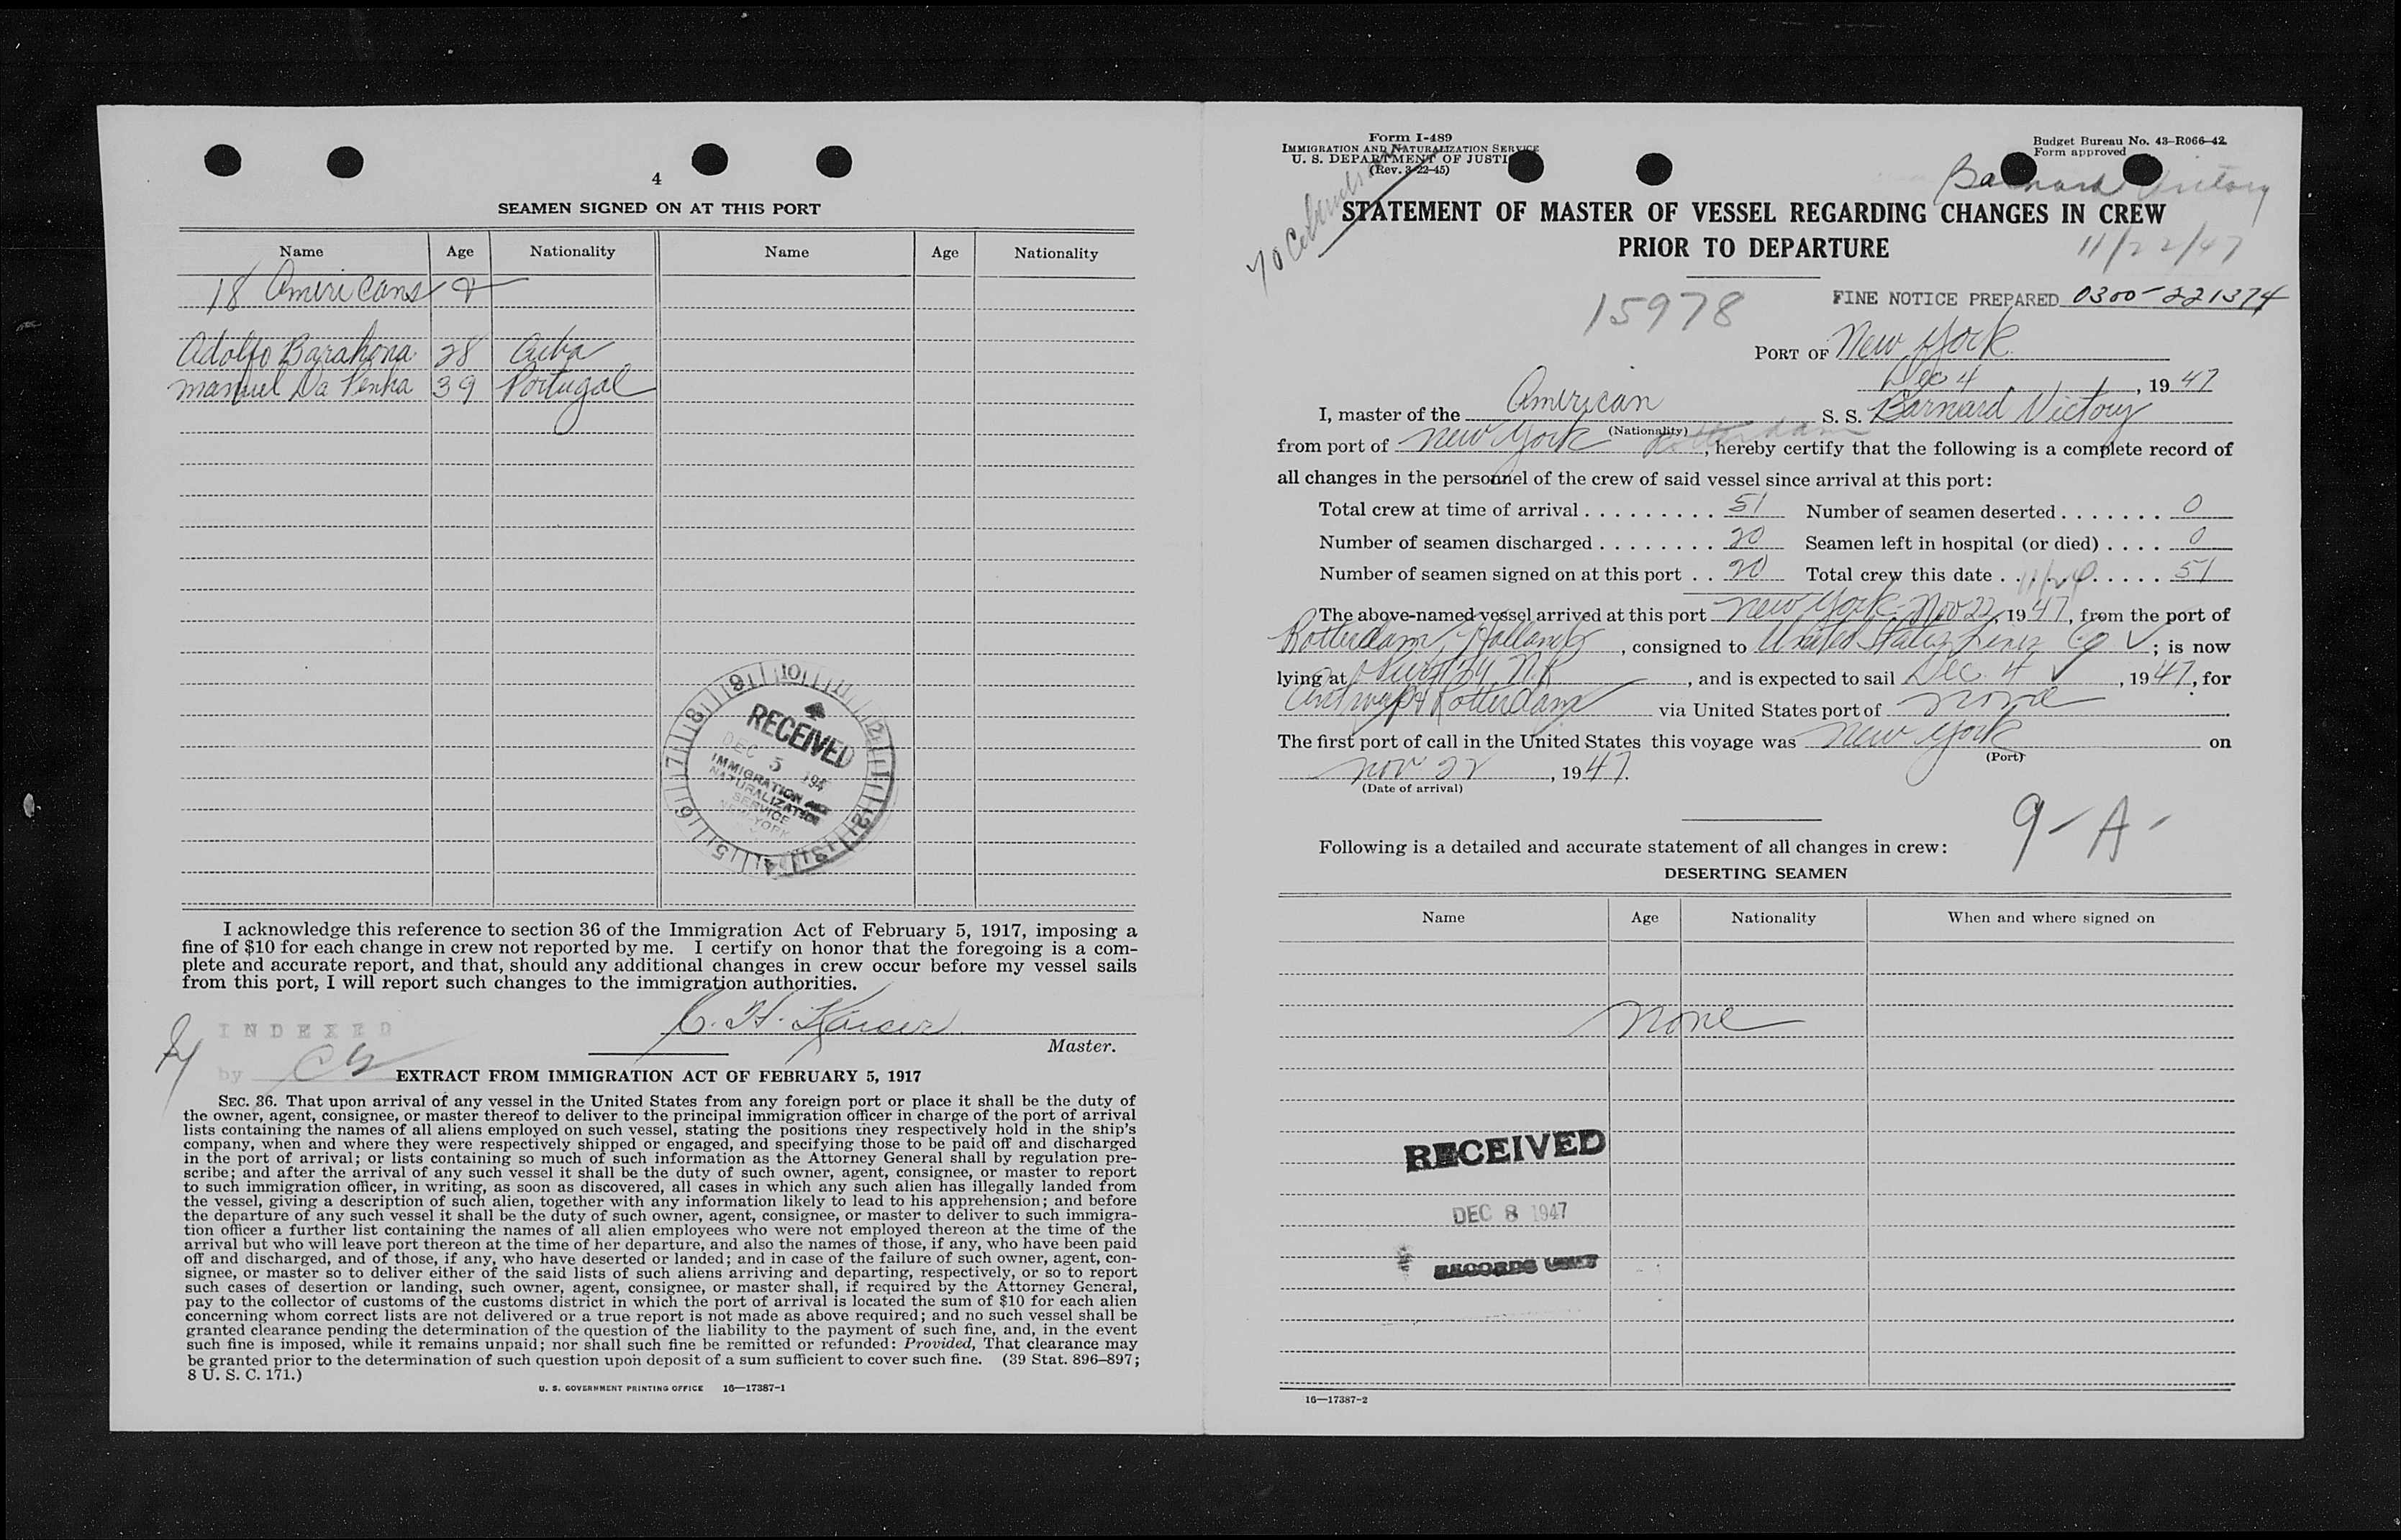 4
SEAMEN SIGNED ON AT THIS PORT
Name Age Nationality Name Age Nationality
18 Americans
Adolfo Barahona 28 Cuba
Manuel Da Penha 39 Portugal
RECEIVED
DEC 5 194
IMMIGRATION AND
NATURALIZATION
SERVICE
NEW YORK
I acknowledge this reference to section 36 of the Immigration Act of February 5, 1917, imposing a
fine of $10 for each change in crew not reported by me. I certify on honor that the foregoing is a com-
plete and accurate report, and that, should any additional changes in crew occur before my vessel sails
from this port, I will report such changes to the immigration authorities.
C. H. Kaiser
Master.
INDEXED
by
EXTRACT FROM IMMIGRATION ACT OF FEBRUARY 5, 1917
SEC. 36. That upon arrival of any vessel in the United States from any foreign port or place it shall be the duty of
the owner, agent, consignee, or master thereof to deliver to the principal immigration officer in charge of the port of arrival
lists containing the names of all aliens employed on such vessel, stating the positions they respectively hold in the ship's
company, when and where they were respectively shipped or engaged, and specifying those to be paid off and discharged
in the port of arrival; or lists containing so much of such information as the Attorney General shall by regulation pre-
scribe; and after the arrival of any such vessel it shall be the duty of such owner, agent, consignee, or master to report
to such immigration officer, in writing, as soon as discovered, all cases in which any such alien has illegally landed from
the vessel, giving a description of such alien, together with any information likely to lead to his apprehension; and before
the departure of any such vessel it shall be the duty of such owner, agent, consignee, or master to deliver to such immigra-
tion officer a further list containing the names of all alien employees who were not employed thereon at the time of the
arrival but who will leave port thereon at the time of her departure, and also the names of those, if any, who have been paid
off and discharged, and of those, if any, who have deserted or landed; and in case of the failure of such owner, agent, con-
signee, or master so to deliver either of the said lists of such aliens arriving and departing, respectively, or so to report
such cases of desertion or landing, such owner, agent, consignee, or master shall, if required by the Attorney General,
pay to the collector of customs of the customs district in which the port of arrival is located the sum of $10 for each alien
concerning whom correct lists are not delivered or a true report is not made as above required; and no such vessel shall be
granted clearance pending the determination of the question of the liability to the payment of such fine, and, in the event
such fine is imposed, while it remains unpaid; nor shall such fine be remitted or refunded: Provided, That clearance may
be granted prior to the determination of such question upon deposit of a sum sufficient to cover such fine. (39 Stat. 896–897;
8 U. S. C. 171.)
U. S. GOVERNMENT PRINTING OFFICE 16—17387-1
Form I-489
IMMIGRATION AND NATURALIZATION SERVICE
U. S. DEPARTMENT OF JUSTI
(Rev. 3-22-45)
Budget Bureau No. 43-R066-42
Form approved
Barnard Victory
STATEMENT OF MASTER OF VESSEL REGARDING CHANGES IN CREW
PRIOR TO DEPARTURE
11/22/47
15978
FINE NOTICE PREPARED 0300-221374
PORT OF New York
Dec 4, 1947
I, master of the American S. S. Barnard Victory
(Nationality)
from port of New York Rotterdam, hereby certify that the following is a complete record of
all changes in the personnel of the crew of said vessel since arrival at this port:
Total crew at time of arrival . . . . . . . . . 51 Number of seamen deserted . . . . . . . 0
Number of seamen discharged . . . . . . . . 20 Seamen left in hospital (or died) . . . . 0
Number of seamen signed on at this port . . 20 Total crew this date . . . . . . . . . . 51
The above-named vessel arrived at this port New York Nov 22, 1947, from the port of
Rotterdam, Holland, consigned to United States Lines Co; is now
lying at N.R., and is expected to sail Dec. 4, 1947, for
Antwerp & Rotterdam via United States port of none.
The first port of call in the United States this voyage was New York on
(Port)
Nov 22, 1947.
(Date of arrival)
9-A-
Following is a detailed and accurate statement of all changes in crew:
DESERTING SEAMEN
Name Age Nationality When and where signed on
None
RECEIVED
DEC 8 1947
RECORDS UNIT
16—17387-2